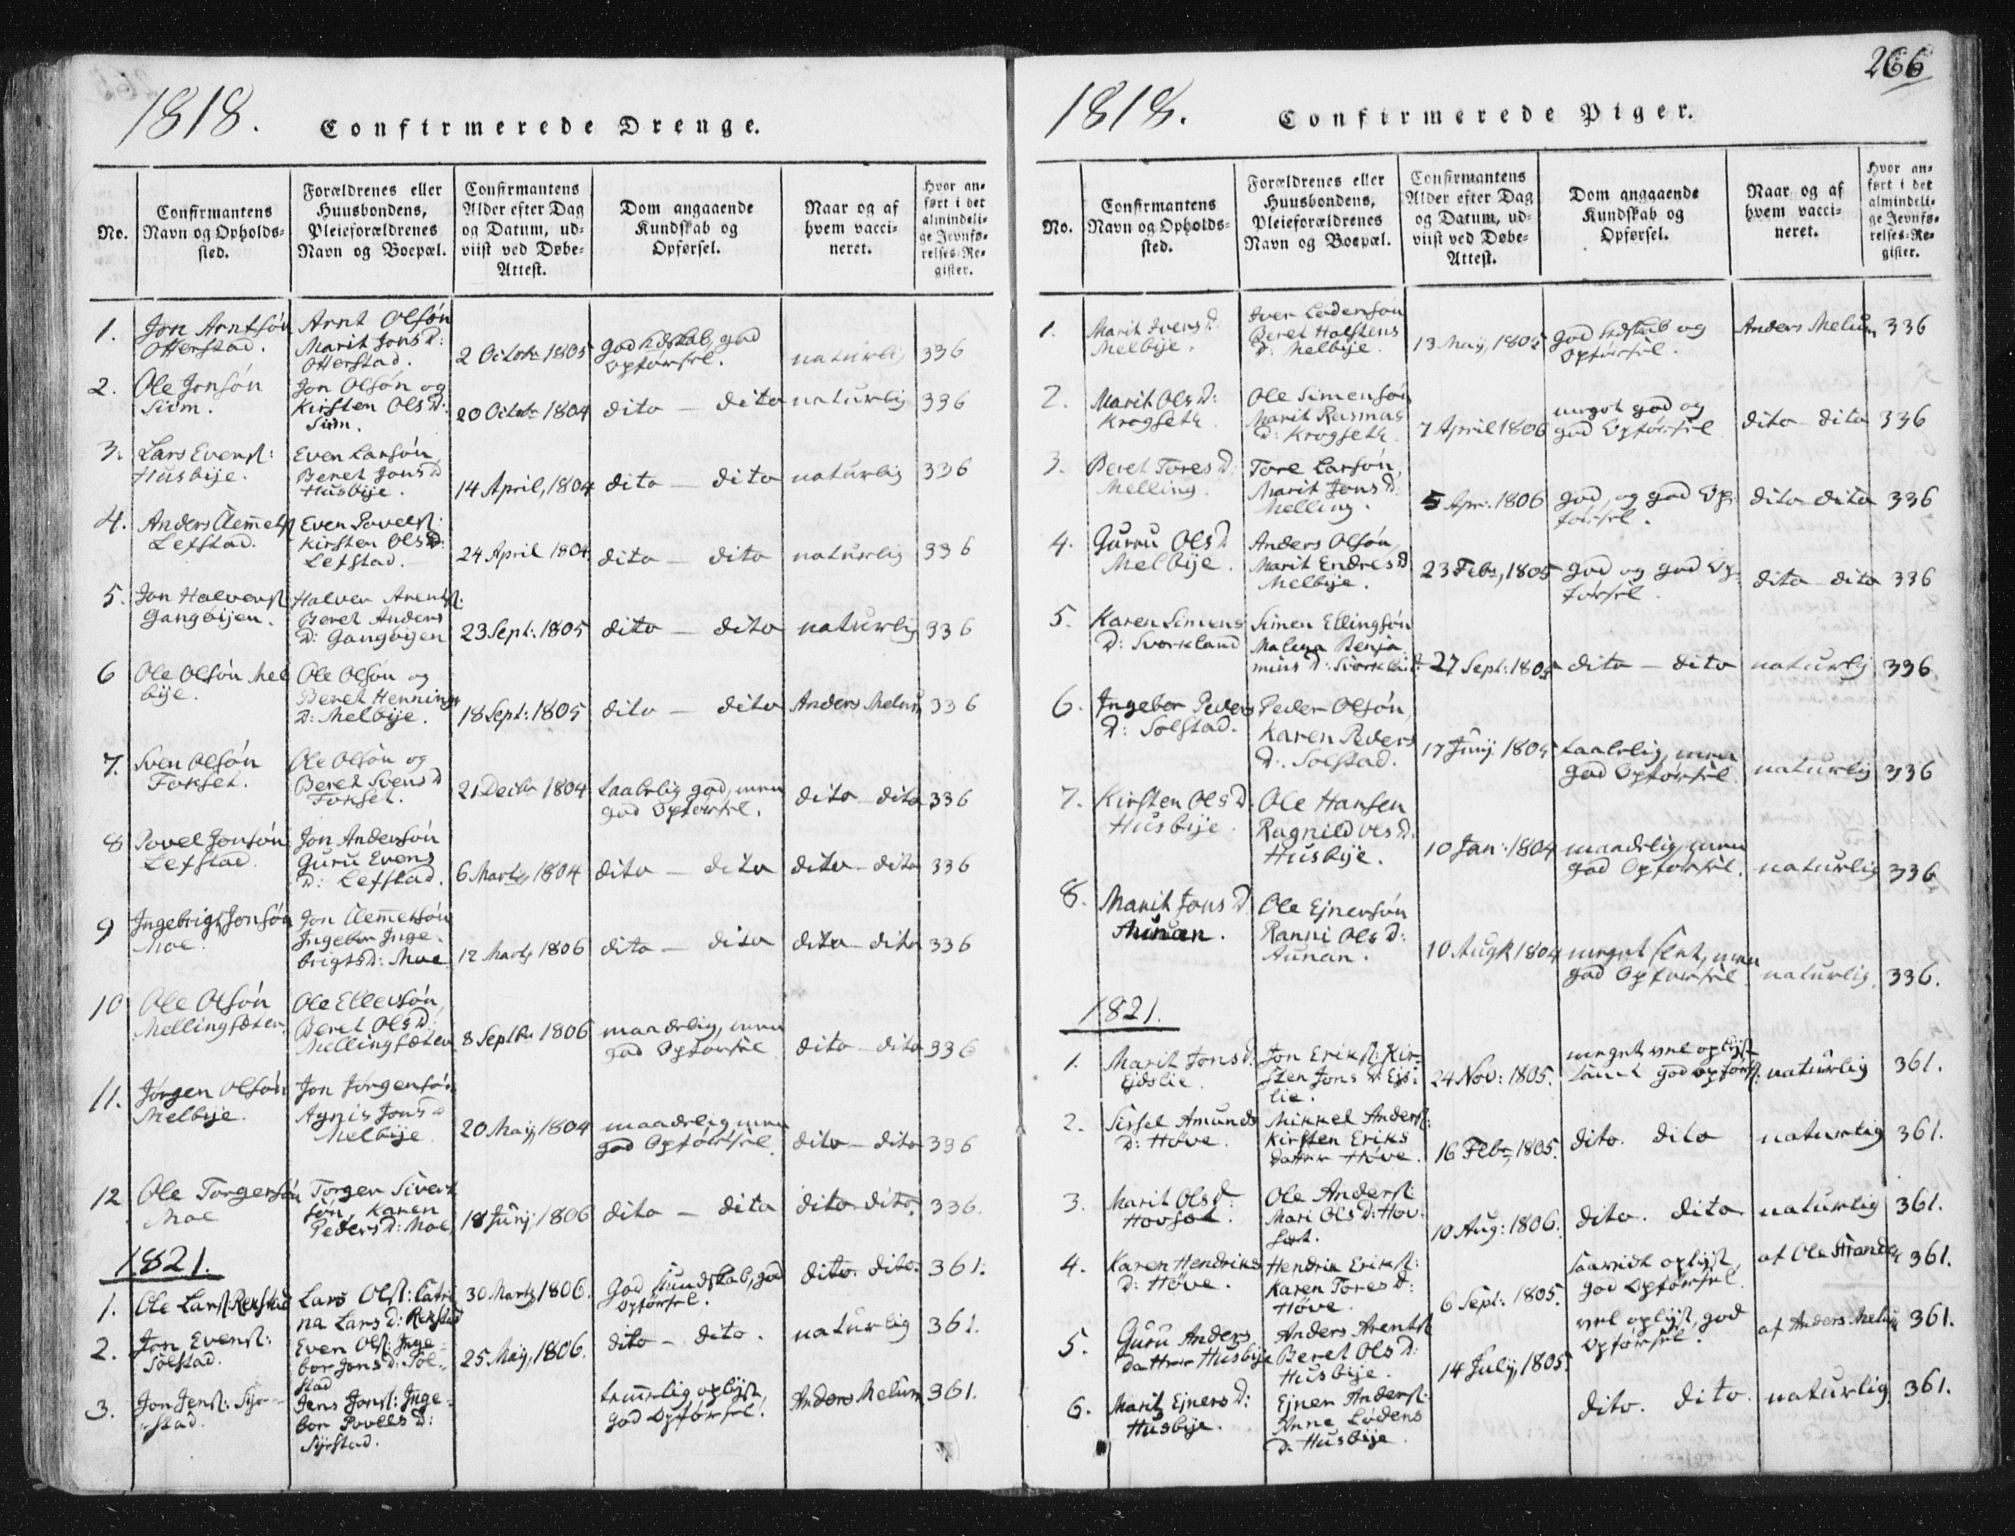 1818.
Confirmerede Drenge.
No.
Confirmantens
Navn og Opholds-
sted.
Forældrenes eller
Huusbondens,
Pleieforældrenes
Navn og Boepæl.
Confirmantens
Alder efter Dag
og Datum, ud-
viist ved Døbe-
Attest.
Dom angaaende
Kundskab og
Opførsel.
Naar og af
hvem vacci-
neret.
Hvor an-
ført i det
almindeli-
ge Jevnfø-
relses-Re-
gister.
1. Jon Arntsøn
Otterstad.
Arnt Olsøn
Marit Jons d:
Otterstad.
2 Octobr 1805
god Kdskab, god
Opførsel.
naturlig
336
2. Ole Jonsøn
Sum.
Jon Olsøn og
Kirsten Ols d:
Sum.
20 Octobr 1804
dito — dito
naturlig
336
3. Lars Evens:
Husbije.
Even Larsøn,
Beret Jons d
Husbije.
14 April, 1804
dito — dito
naturlig
336
4. Anders Clemets
Lefstad.
Even Povels:
Kirsten Ols d:
Lefstad.
24 April 1804
dito — dito
naturlig
336
5. Jon Halvers:
Gangøijen.
Halver Arents:
Beret Anders
D: Gangøijen
23 Sept: 1805
dito — dito
naturlig
336
6 Ole Olsøn Mel
bije.
Ole Olsøn og
Beret Hennings
D: Melbije.
18 Sept: 1805
dito — dito
Anders Melum
336
7. Sven Olsøn
Fokset.
Ole Olsøn og
Beret Svens d
Fokset.
21 Decbr 1804
taalelig god, men
god Opførsel.
dito — dito
336
8 Povel Jonsøn
Lefstad
Jon Andersøn
Guru Evens
D: Lefstad.
6 Marty 1804
dito — dito
dito — dito
336
9 Ingebrigt Jonsøn
Moe.
Jon Clemetsøn
Ingebor Inge-
brigts d: Moe
12 Marty 1806
dito — dito
dito — dito
336
10 Ole Olsøn
Mellingsæter.
Ole Ellevsøn,
Beret Ols D:
Mellingsæter
8 Septbr 1806
maadelig, men
god Opførsel
dito — dito
336
11. Jørgen Olsøn
Melbije.
Jon Jørgensøn
Agnis Jons d
Melbije
20 Maij 1804
maadelig men
god Opførsel.
dito — dito
336
12 Ole Torgersøn
Moe
Torger Sivert
søn, Karen
Peders d: Moe,
18 Junij 1806
dito — dito
dito dito.
336.
1821.
1. Ole Lars: Rekstad
Lars Ols: Catri
na Lars d: Rekstad
30 Marty 1806.
God Kundskab, god
Opførsel.
dito. dito.
361.
2. Jon Evens:
Solstad.
Even Ols: Inge-
bor Jons d: Sol-
stad
25 Maij, 1806.
dito — dito.
naturlig
361.
3. Jon Jens: Syr-
stad.
Jens Jons: Inge-
bor Povels d:
Syrstad.
temmelig oplyst,
god Opførsel.
Anders Melum
361.
266
1818.
Confirmerede Piger.
No.
Confirmantens
Navn og Opholds-
sted.
Forældrenes eller
Huusbondens,
Pleieforældrenes
Navn og Boepæl.
Confirmantens
Alder efter Dag
og Datum, ud-
viist ved Døbe-
Attest.
Dom angaaende
Kundskab og
Opførsel.
Naar og af
hvem vacci-
neret.
Hvor an-
ført i det
almindeli-
ge Jevnfø-
relses-Re-
gister.
1. Marit Ivers d:
Melbije.
Iver Lodersøn
Beret Halstens
D: Melbije.
13 Maij, 1805
god Kdskab og
Opførsel.
Anders Melum
336
2. Marit Ols D:
Krogseth
Ole Simensøn
Marit Rasmus
D: Krogseth.
7 April 1806
meget god og
god Opførsel
dito dito
336
3. Beret Tores D:
Melling.
Tore Larsøn,
Marit Jons d:
Melling.
5 Apr: 1806
god, og god Op-
førsel.
dito dito
336
4. Guru Ols D
Melbije.
Anders Olsøn,
Marit Endres D
Melbije.
23 Febr, 1805
god og god Op-
førsel
dito dito
336
5. Karen Simens
D: Svorkland
Simen Ellingsøn
Malena Benja
mins D: Svorkland
27 Sept: 1805
dito — dito
naturlig
336
6. Ingebor Peders
D: Solstad.
Peder Olsøn,
Karen Peders
D: Solstad.
17 Junij 1805
taalelig, men
god Opførsel
naturlig
336
7. Kirsten Ols D:
Husbije
Ole Hansen
Ragnild Ols d:
Husbije.
10 Jan: 1804
maadelig, men
god Opførsel.
naturlig
336
8. Marit Jons D
Aunan.
Ole Ejnersøn
Ranni Ols D:
Aunan.
10 Augst 1804
meget slet, men
god Opførsel
naturlig.
336.
1821.
1. Marit Jons d:
Ejdslie.
Jon Eriks: Kir-
sten Jons d: Ejs-
lie.
24 Nov: 1805.
meget vel oplyst
samt god Opførs:
naturlig
361.
2. Sissel Amunds
D: Høve.
Mikkel Anders:
Kirsten Eriks
datter Høve.
16 Febr, 1805.
dito. dito
naturlig
361.
3. Marit Ols d:
Hovset.
Ole Anders:
Mari Ols D: Hov-
set.
10 Aug: 1806.
dito. dito
naturlig
361.
4. Karen Hendriks
d: Høve.
Hendrik Eriks:
Karen Tores d:
Høve.
6 Sept: 1805.
oplyst,
god Opførsel.
af Ole Strande
361.
5. Guru Anders
datter Husbije
Anders Arents:
Beret Ols D:
Husbije.
14 July, 1805.
vel oplyst, god
Opførsel.
af Anders Melum
361.
6. Marit Ejners D:
Husbije.
Ejner Anders:
Anne Lødens
d: Husbije.
dito. dito.
naturlig
361.